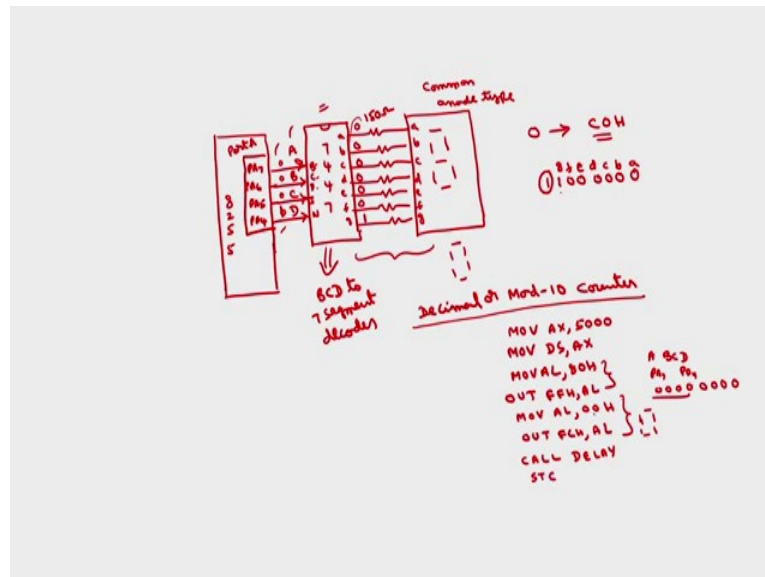 Common
anode type
150Ω
Port A
PA7
PA6
PA5
PA4
8
2
5
5
A
B
C
D
7
4
4
7
a
b
c
d
e
f
g
0
0
0
0
0
0
1
a
b
c
d
e
f
g
0 → C0H
g f e d c b a
1 1 0 0 0 0 0 0
BCD to
7 segment
decoder
Decimal or Mod-10 Counter
MOV AX, 5000
MOV DS, AX
MOV AL, 80H
OUT FFH, AL
MOV AL, 00H
OUT FCH, AL
CALL DELAY
STC
A BCD
PA7 PA4
0000 0000